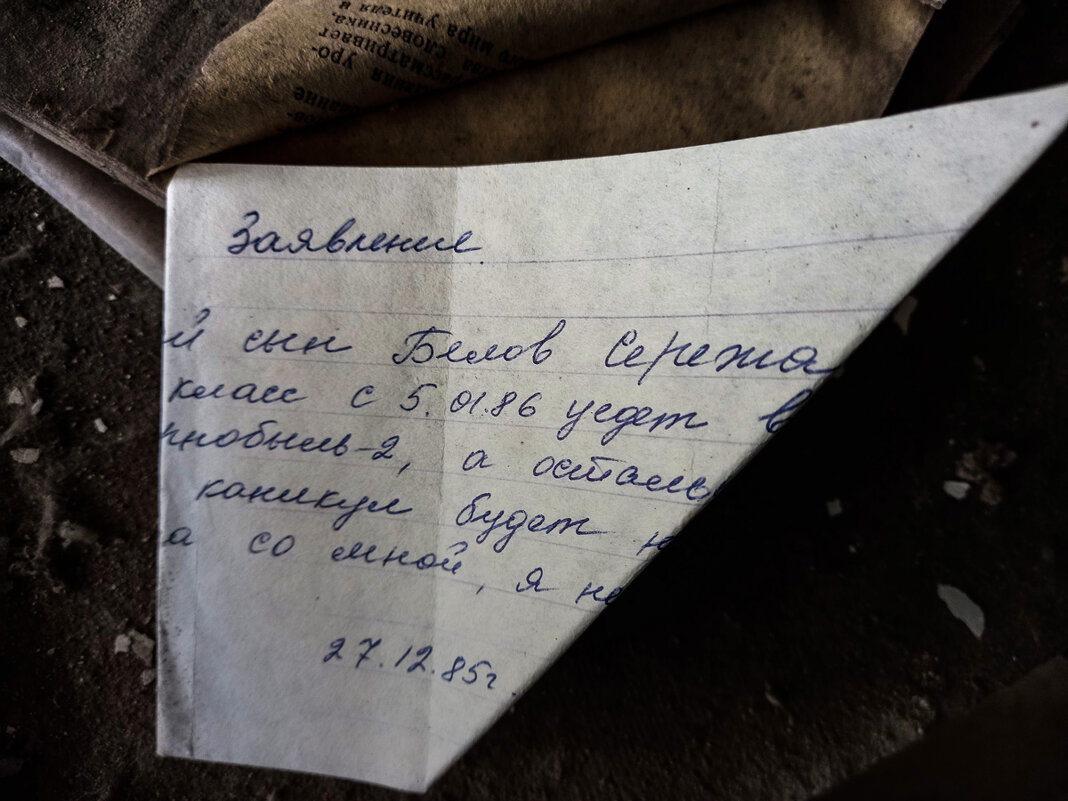 Уро-
рассматривает
словесника.
мира учителя и
Заявление.
й сын Белов Сережа
класс с 5.01.86 уедет в
рнобыль-2, а осталь
каникул будет н
а со мной, я не
27.12.85г.